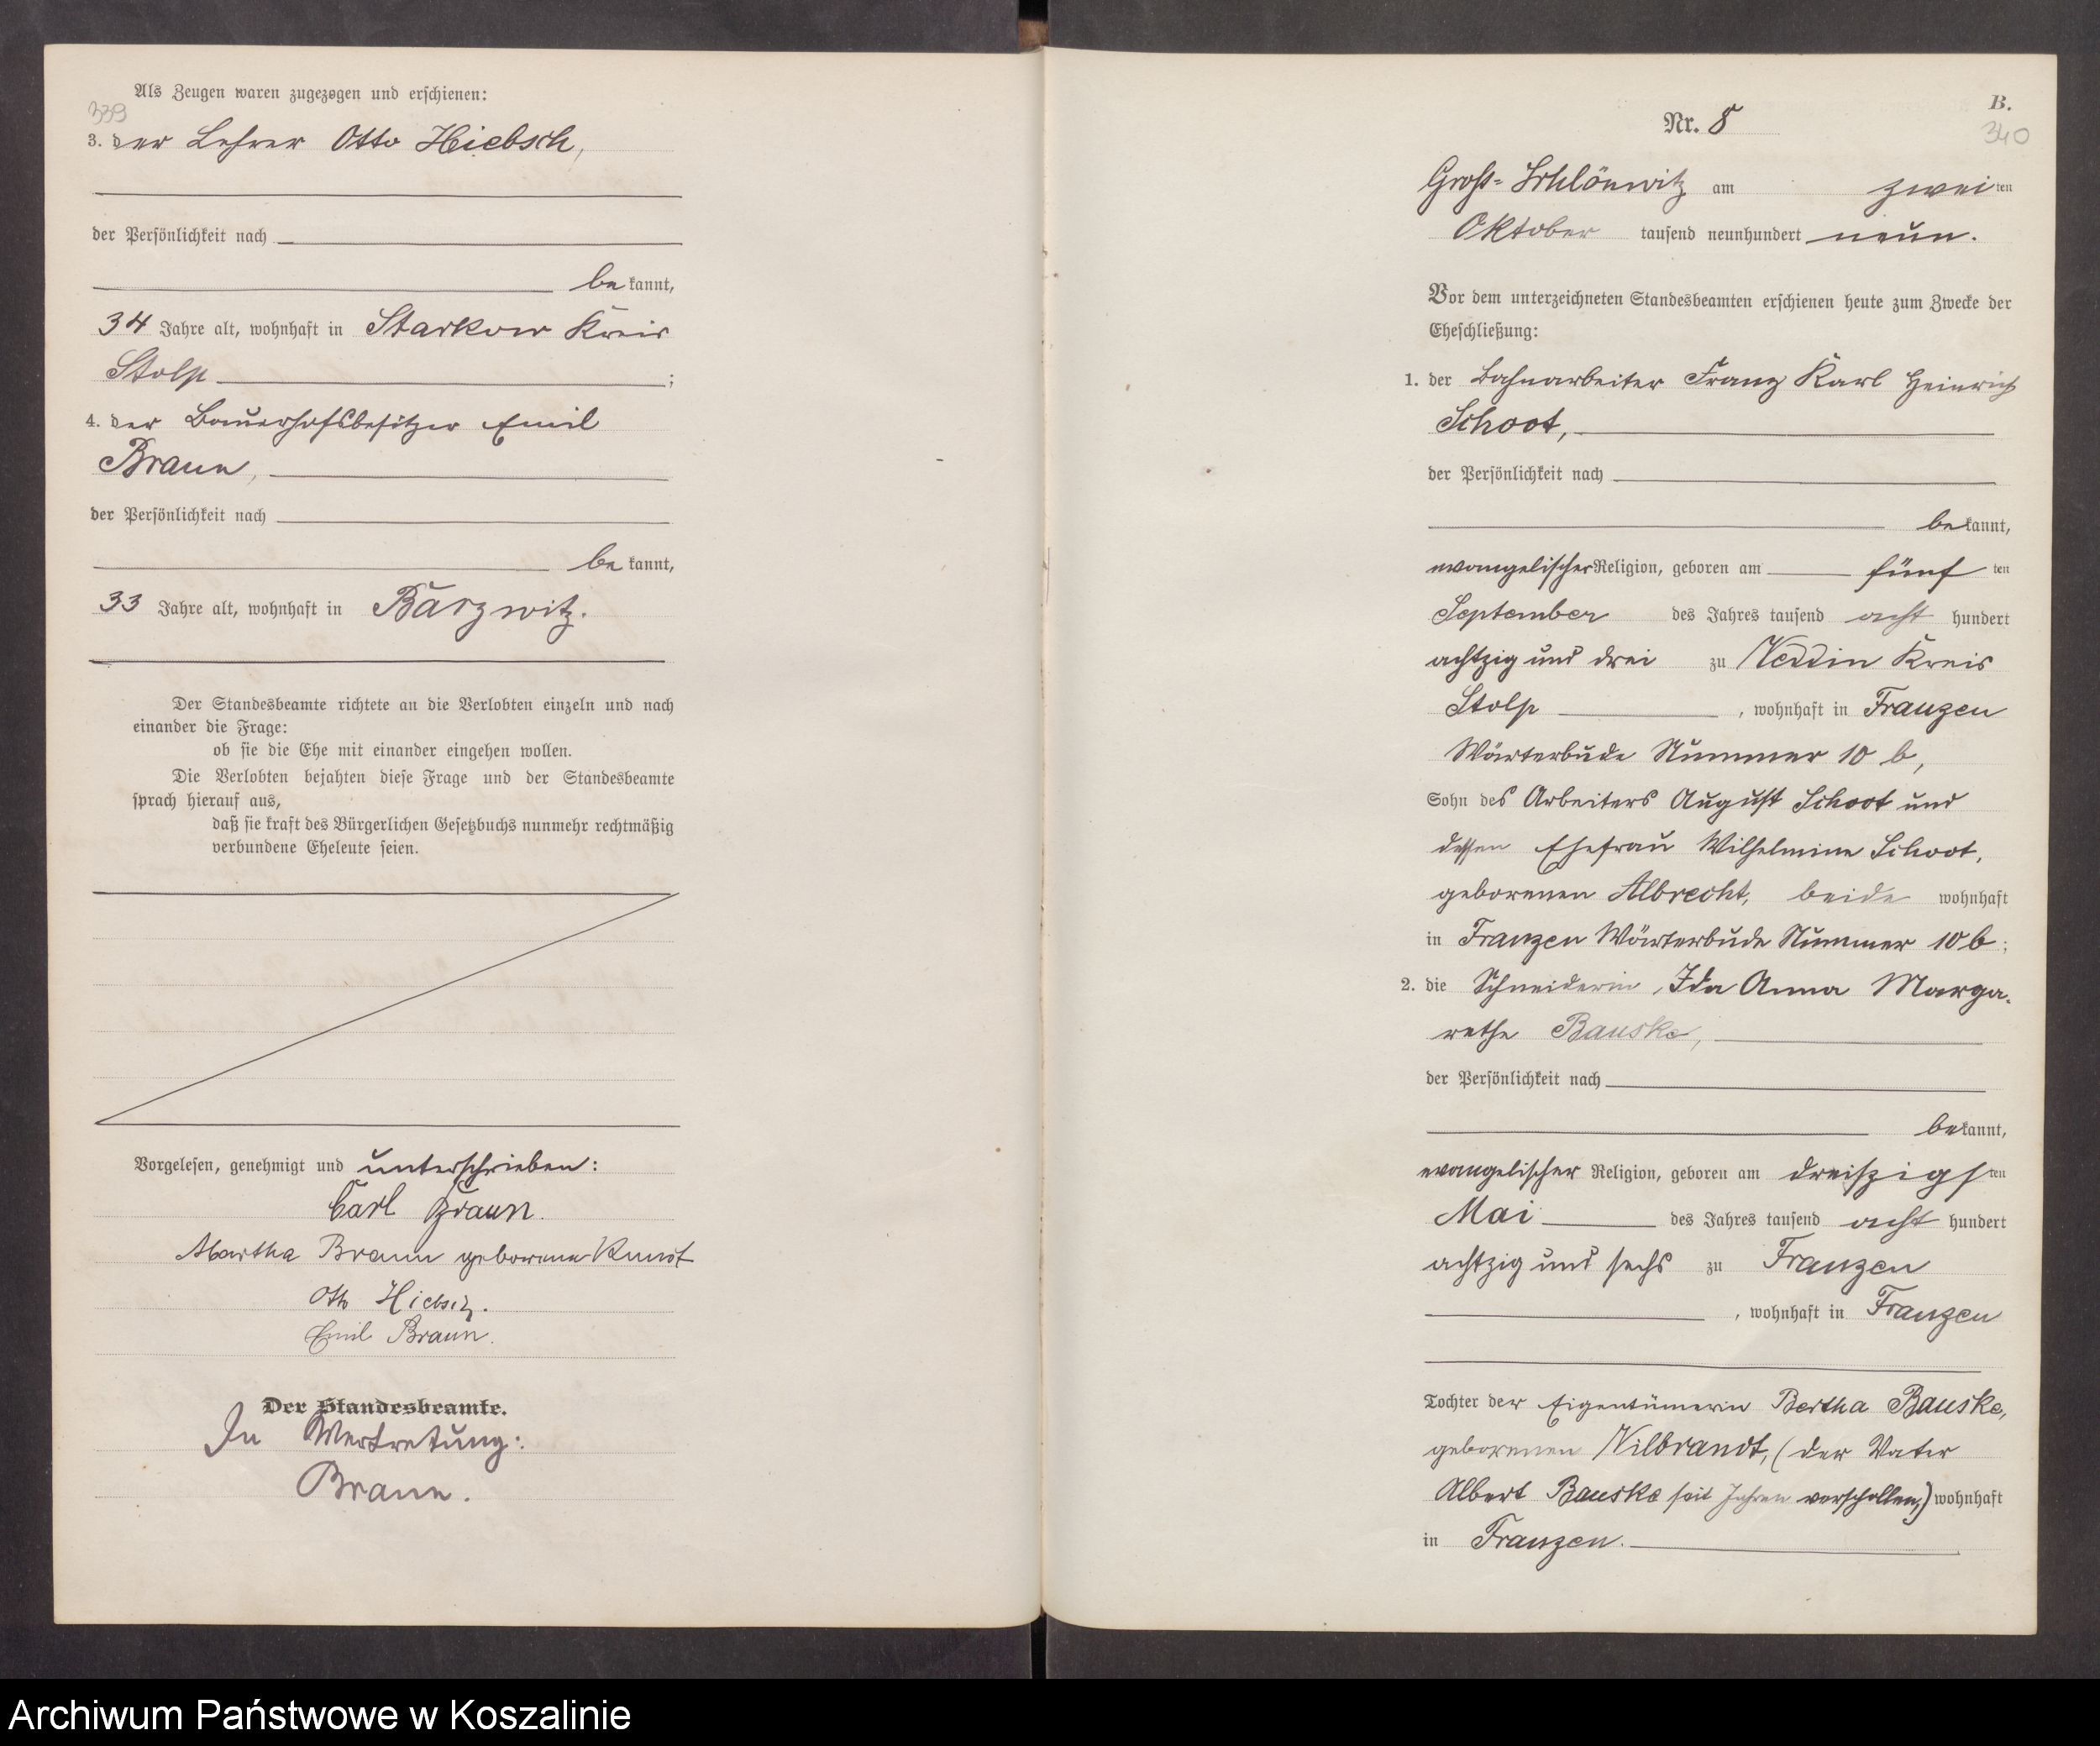 Als Zeugen waren zugezogen und erschienen:
339
3. der Lehrer Otto Hiebsch,
der Persönlichkeit nach
be kannt,
34 Jahre alt, wohnhaft in Starkow Kreis
Stolp ;
4. der Bauerhofsbesitzer Emil
Braun,
der Persönlichkeit nach
be kannt,
33 Jahre alt, wohnhaft in Barzwitz.
Der Standesbeamte richtete an die Verlobten einzeln und nach
einander die Frage:
ob sie die Ehe mit einander eingehen wollen.
Die Verlobten bejahten diese Frage und der Standesbeamte
sprach hierauf aus,
daß sie kraft des Bürgerlichen Gesetzbuchs nunmehr rechtmäßig
verbundene Eheleute seien.
Vorgelesen, genehmigt und unterschrieben:
Carl Braun.
Martha Braun geborene Kundt
Otto Hiebsch.
Emil Braun.
Der Standesbeamte.
In Vertretung:
Braun.
B.
Nr. 8
340
Groß-Schlönwitz am zwei ten
Oktober tausend neunhundert neun.
Vor dem unterzeichneten Standesbeamten erschienen heute zum Zwecke der
Eheschließung:
1. der Bahnarbeiter Franz Karl Heinrich
Schoot,
der Persönlichkeit nach
be kannt,
evangelischer Religion, geboren am fünf ten
September des Jahres tausend acht hundert
achtzig und drei zu Veddin Kreis
Stolp , wohnhaft in Franzen
Wärterbude Nummer 10 b,
Sohn des Arbeiters August Schoot und
dessen Ehefrau Wilhelmine Schoot,
geborenen Albrecht, beide wohnhaft
in Franzen Wärterbude Nummer 10 b;
2. die Schneiderin, Ida Anna Marga-
rethe Bauske,
der Persönlichkeit nach
be kannt,
evangelischer Religion, geboren am dreiszigs ten
Mai des Jahres tausend acht hundert
achtzig und sechs zu Franzen
, wohnhaft in Franzen
Tochter der Eigentümerin Bertha Bauske,
geborenen Vilbrandt, (der Vater
Albert Bauske seit Jahren verschollen,) wohnhaft
in Franzen.
Archiwum Państwowe w Koszalinie